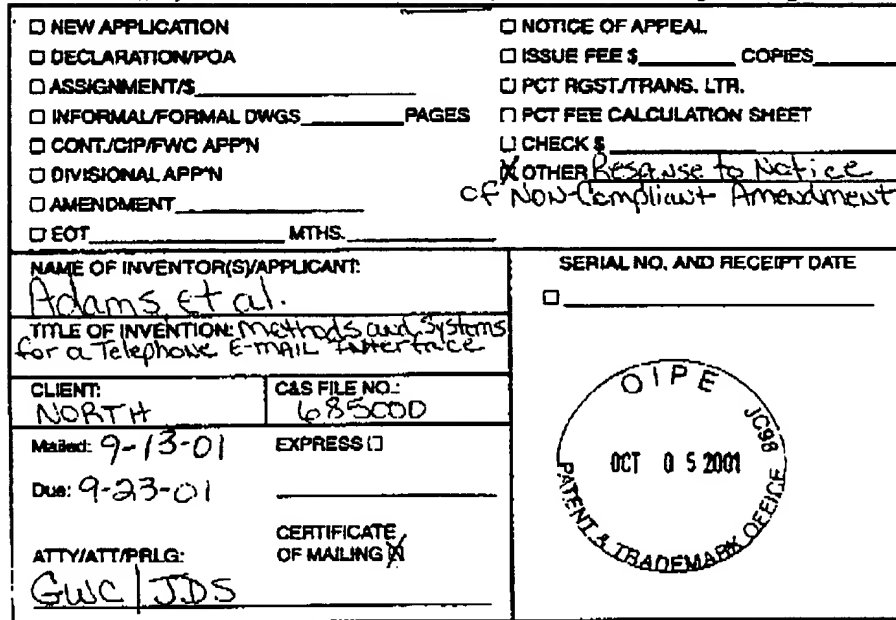 ☐ NEW APPLICATION
☐ DECLARATION/POA
☐ ASSIGNMENT/$
☐ INFORMAL/FORMAL DWGS PAGES
☐ CONT./CIP/FWC APP'N
☐ DIVISIONAL APP'N
☐ AMENDMENT
☐ EOT MTHS.
☐ NOTICE OF APPEAL
☐ ISSUE FEE $ COPIES
☐ PCT RGST./TRANS. LTR.
☐ PCT FEE CALCULATION SHEET
☐ CHECK $
☒ OTHER Response to Notice
of Non-Compliant Amendment
NAME OF INVENTOR(S)/APPLICANT:
Adams, et al.
TITLE OF INVENTION: Methods and Systems
for a Telephone E-MAIL Interface
CLIENT:
NORTH
C&S FILE NO.:
685000
Mailed: 9-13-01
EXPRESS ☐
Due: 9-23-01
CERTIFICATE
OF MAILING ☒
ATTY/ATT/PRLG:
GWC/JDS
SERIAL NO. AND RECEIPT DATE
☐
OIPE
JC98
OCT 05 2001
PATENT & TRADEMARK OFFICE